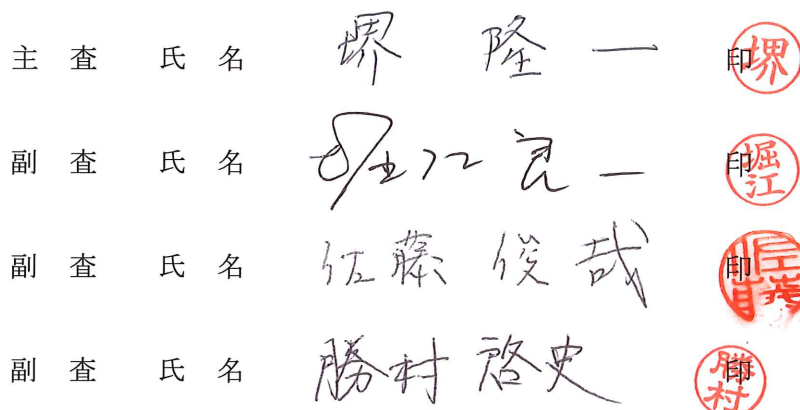 主 査 氏 名 堺 隆 一 印 堺
副 査 氏 名 堀江 良一 印 堀江
副 査 氏 名 佐藤 俊哉 印 佐藤
副 査 氏 名 勝村 啓史 印 勝村